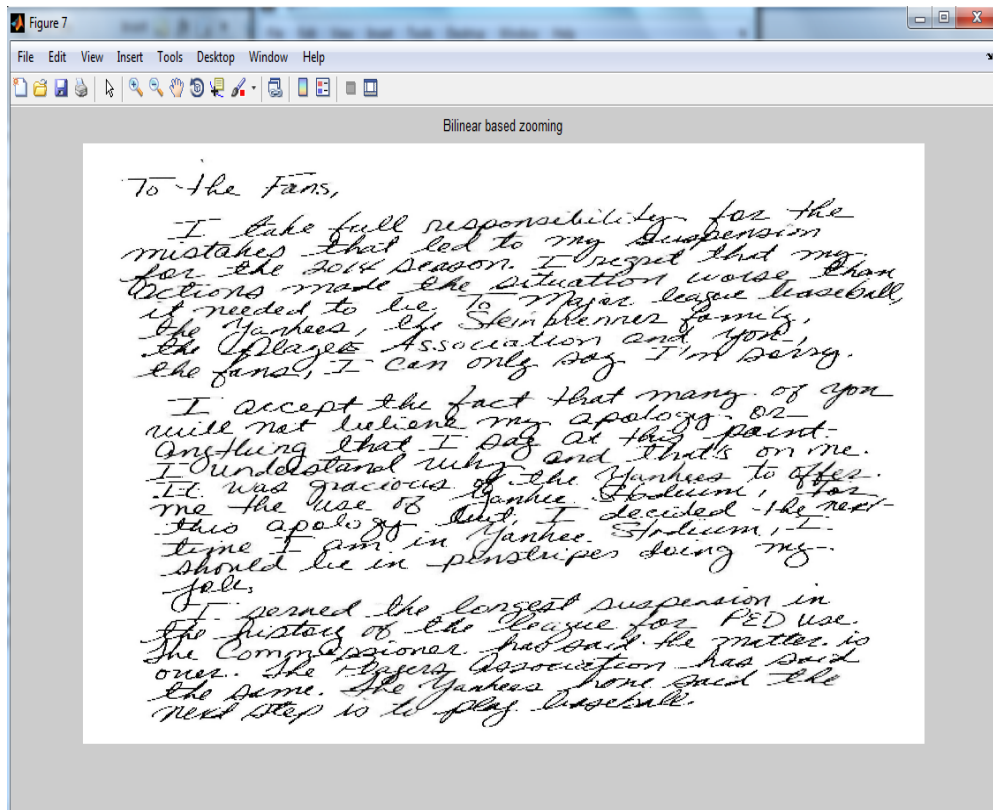 Figure 7
File Edit View Insert Tools Desktop Window Help
Bilinear based zooming
To the Fans,
I take full responsibility for the
mistakes that led to my suspension
for the 2014 season. I regret that my
actions made the situation worse than
it needed to be. To Major league baseball,
the Yankees, the Steinbrenner family,
the Players Association and you,
the fans, I can only say I'm sorry.
I accept the fact that many of you
will not believe my apology or
anything that I say at this point.
I understand why and that's on me.
It was gracious of the Yankees to offer
me the use of Yankee Stadium, for
this apology but, I decided the next
time I am in Yankee Stadium, I
should be in pinstripes doing my
job.
I served the longest suspension in
the history of the league for PED use.
The Commissioner has said the matter is
over. The Players Association has said
the same. The Yankees have said the
next step is to play baseball.